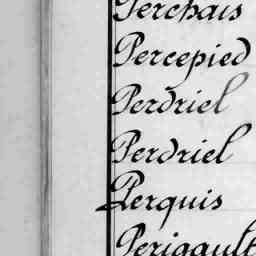 Perchais
Percepied
Perdriel
Perdriel
Perquis
Perigault